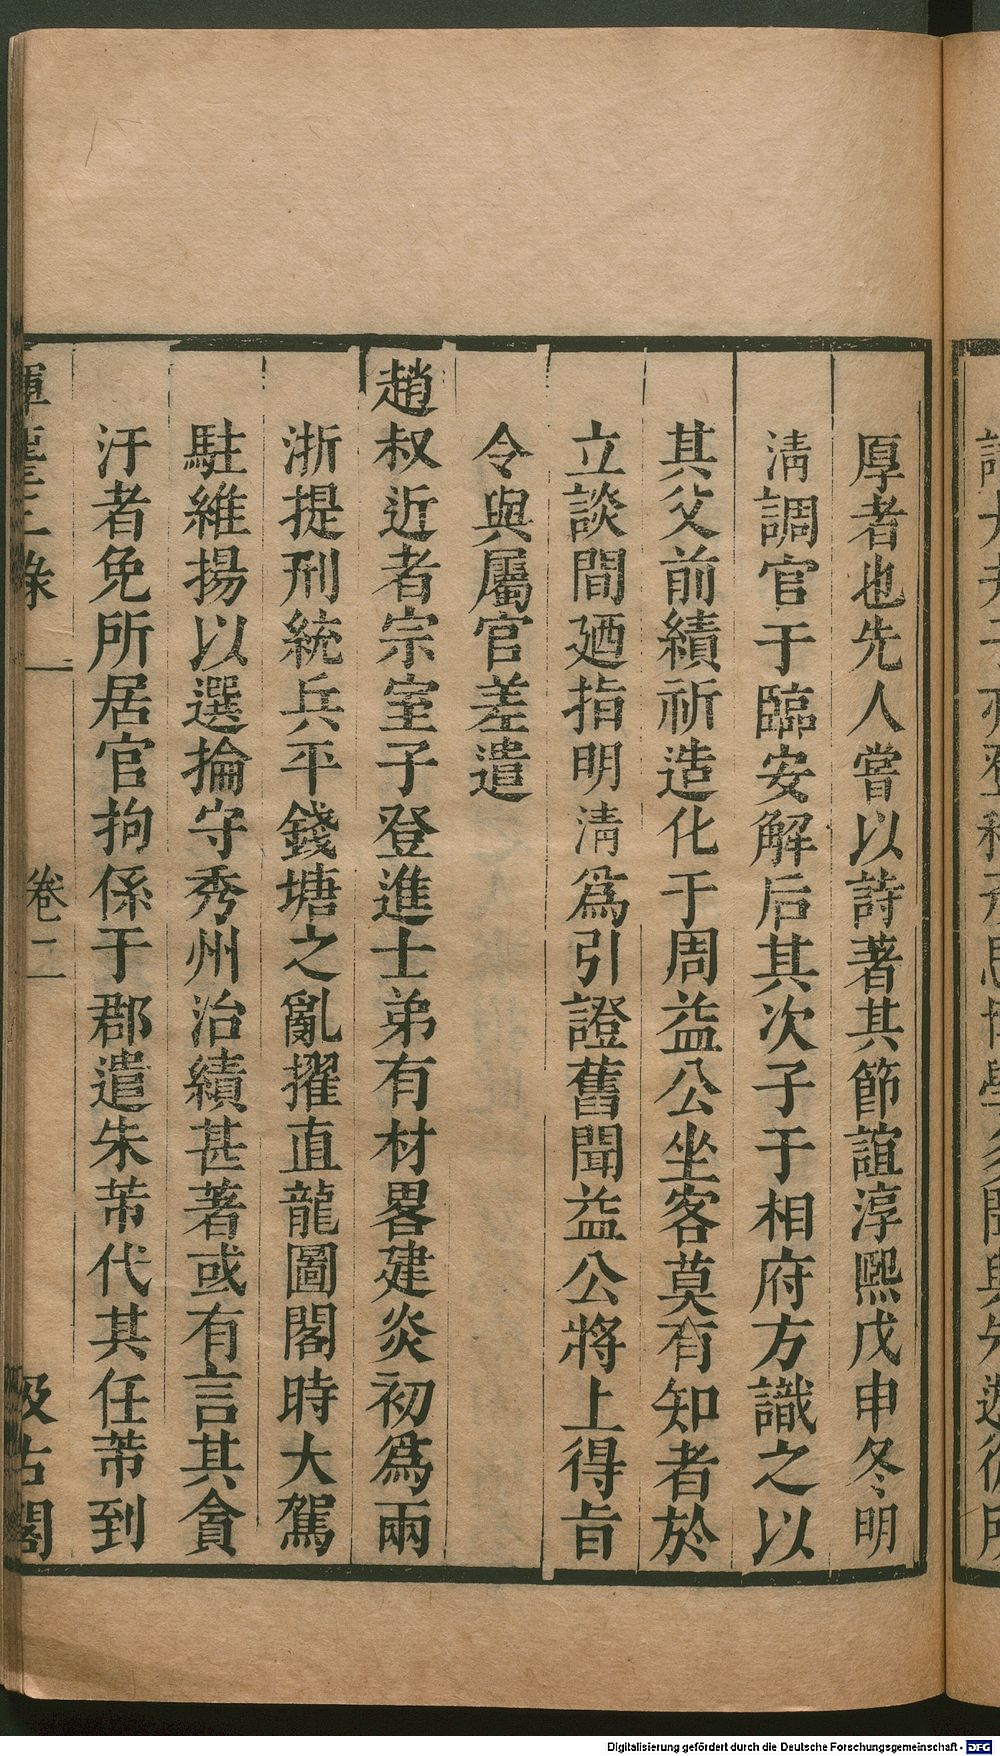 厚者也先人嘗以詩著其節誼淳熙戊申冬明
清調官于臨安解后其次子于相府方識之以
其父前績祈造化于周益公坐客莫有知者於
立談間廼指明清爲引證舊聞益公將上得旨
令與屬官差遣
趙叔近者宗室子登進士弟有材畧建炎初爲兩
浙提刑統兵平錢塘之亂擢直龍圖閣時大駕
駐維揚以選掄守秀州治績甚著或有言其貪
汙者免所居官拘係于郡遣朱芾代其任芾到
揮麈三錄 卷二 汲古閣
Digitalisierung gefördert durch die Deutsche Forschungsgemeinschaft - DFG